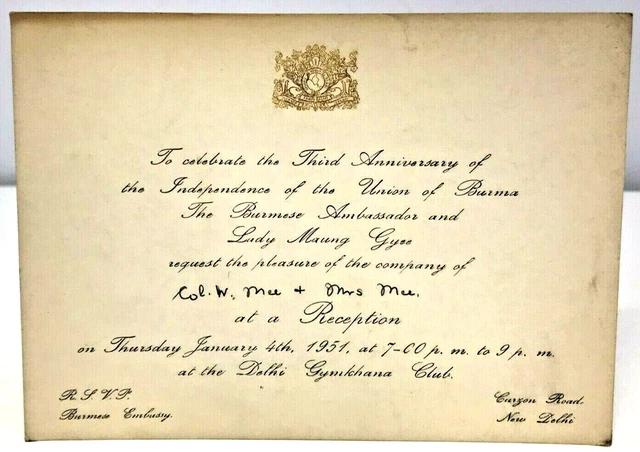 To celebrate the Third Anniversary of
the Independence of the Union of Burma
The Burmese Ambassador and
Lady Maung Gyee
request the pleasure of the company of
Col. W. Mee + Mrs Mee.
at a Reception
on Thursday January 4th, 1951, at 7-00 p. m. to 9 p. m.
at the Delhi Gymkhana Club.
R. S. V. P.
Burmese Embassy.
Curzon Road.
New Delhi